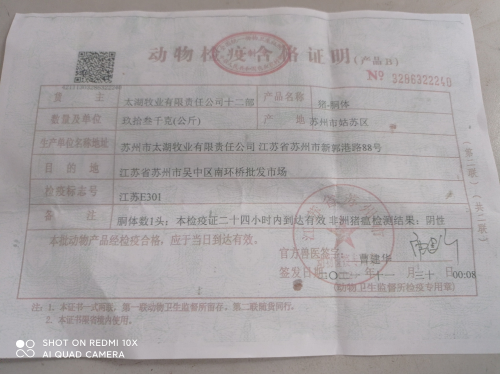 动物检疫合格证明(产品B)
№ 3286322240
货 主 太湖牧业有限责任公司十二部 产品名称 猪-胴体
数量及单位 玖拾叁千克(公斤) 产 地 苏州市姑苏区
生产单位名称地址 苏州市太湖牧业有限责任公司 江苏省苏州市新郭港路88号
目 的 地 江苏省苏州市吴中区南环桥批发市场
检疫标志号 江苏E301
备 注 胴体数1头；本检疫证二十四小时内到达有效 非洲猪瘟检测结果：阴性
本批动物产品经检疫合格，应于当日到达有效。
官方兽医签字： 曹建华
签发日期： 二〇二一年十一月三十日 00:08
(动物卫生监督所检疫专用章)
注：1. 本证书一式两联，第一联动物卫生监督所留存，第二联随货同行。
2. 本证书限省境内使用。
SHOT ON REDMI 10X
AI QUAD CAMERA